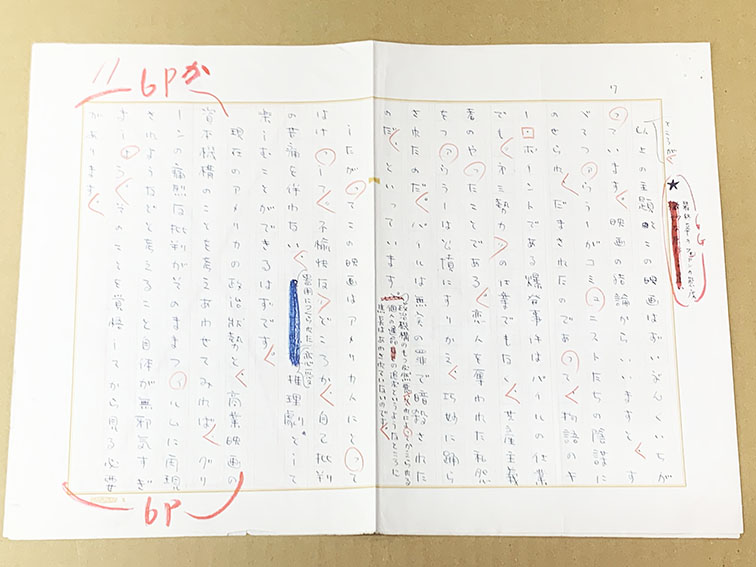 7
以上の主題とこの映画はずいぶんくいちが
っています。映画の結論からいいますと、す
べてファウラーがコミュニストたちの陰謀に
のせられ、だまされたのであって、物語のキ
ー・ポイントである爆発事件はパイルの仕業
でも、第三勢力の仕業でもない、共産主義
者のやったことである、恋人を奪われた私怨
をファウラーは公憤にすりかえ、巧妙に踊ら
されたのだ、パイルは無実の罪で暗殺された
のだ、といっています。
したがってこの映画はアメリカ人にとって
はけっして不愉快な、どころか、自己批判
の苦痛を伴わない、推理劇として
楽しむことができるはずです。
現在のアメリカの政治状勢と、商業映画の
資本機構のことを考えあわせてみれば、グリ
ーンの痛烈な批判がそのままフィルムに再現
されようなどと考えること自体が無邪気すぎ
ましょう。そのことを覚悟してから見る必要
があります。
6Pか
6P